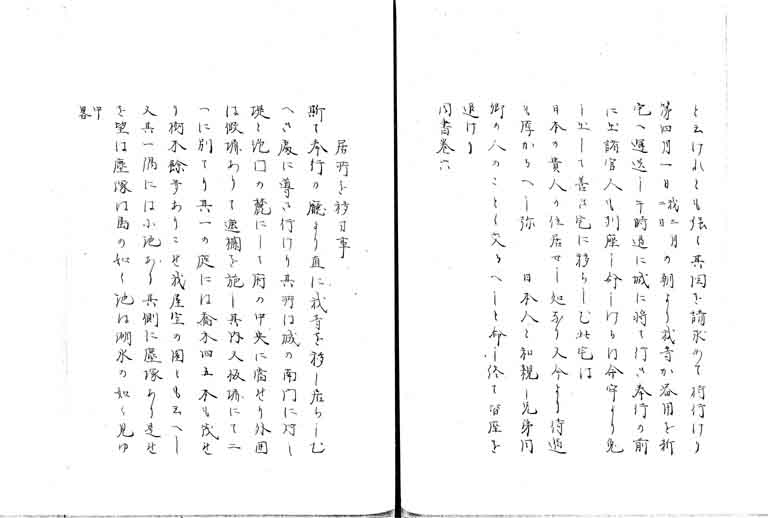 と云けれとも強く其図を請求めて将行けり
第四月一日 我二月二日 の朝より我等か器用を新
宅へ運送し午時過に城に将て行き奉行の前
に出諸官人も列座し命しけるは今守より免
し出して善き宅に移らしむ此宅は
日本の貴人の住居せし処なり又今より待遇
も厚かるへし弥 日本人と和親し兄弟同
郷の人のことく交るへしと命し終て皆座を
退けり
同書巻六
居所を移す事
斯て奉行の廰より直に我等を移し居らしむ
へき處に導き行けり其所は城の南門に対し
堤と池門の麓にして府の中央に當せり外囲
は假塀ありて邀欄を施し其内又板塀にて二
つに別てり其一の庭には喬木四五本も茂せ
り樹木餘多ありこせ我屋室の園とも云へし
又其一隅には小池あり其側に塵塚あり是せ
を望は塵塚は馬の如く池は湖水の如く見ゆ
中畧